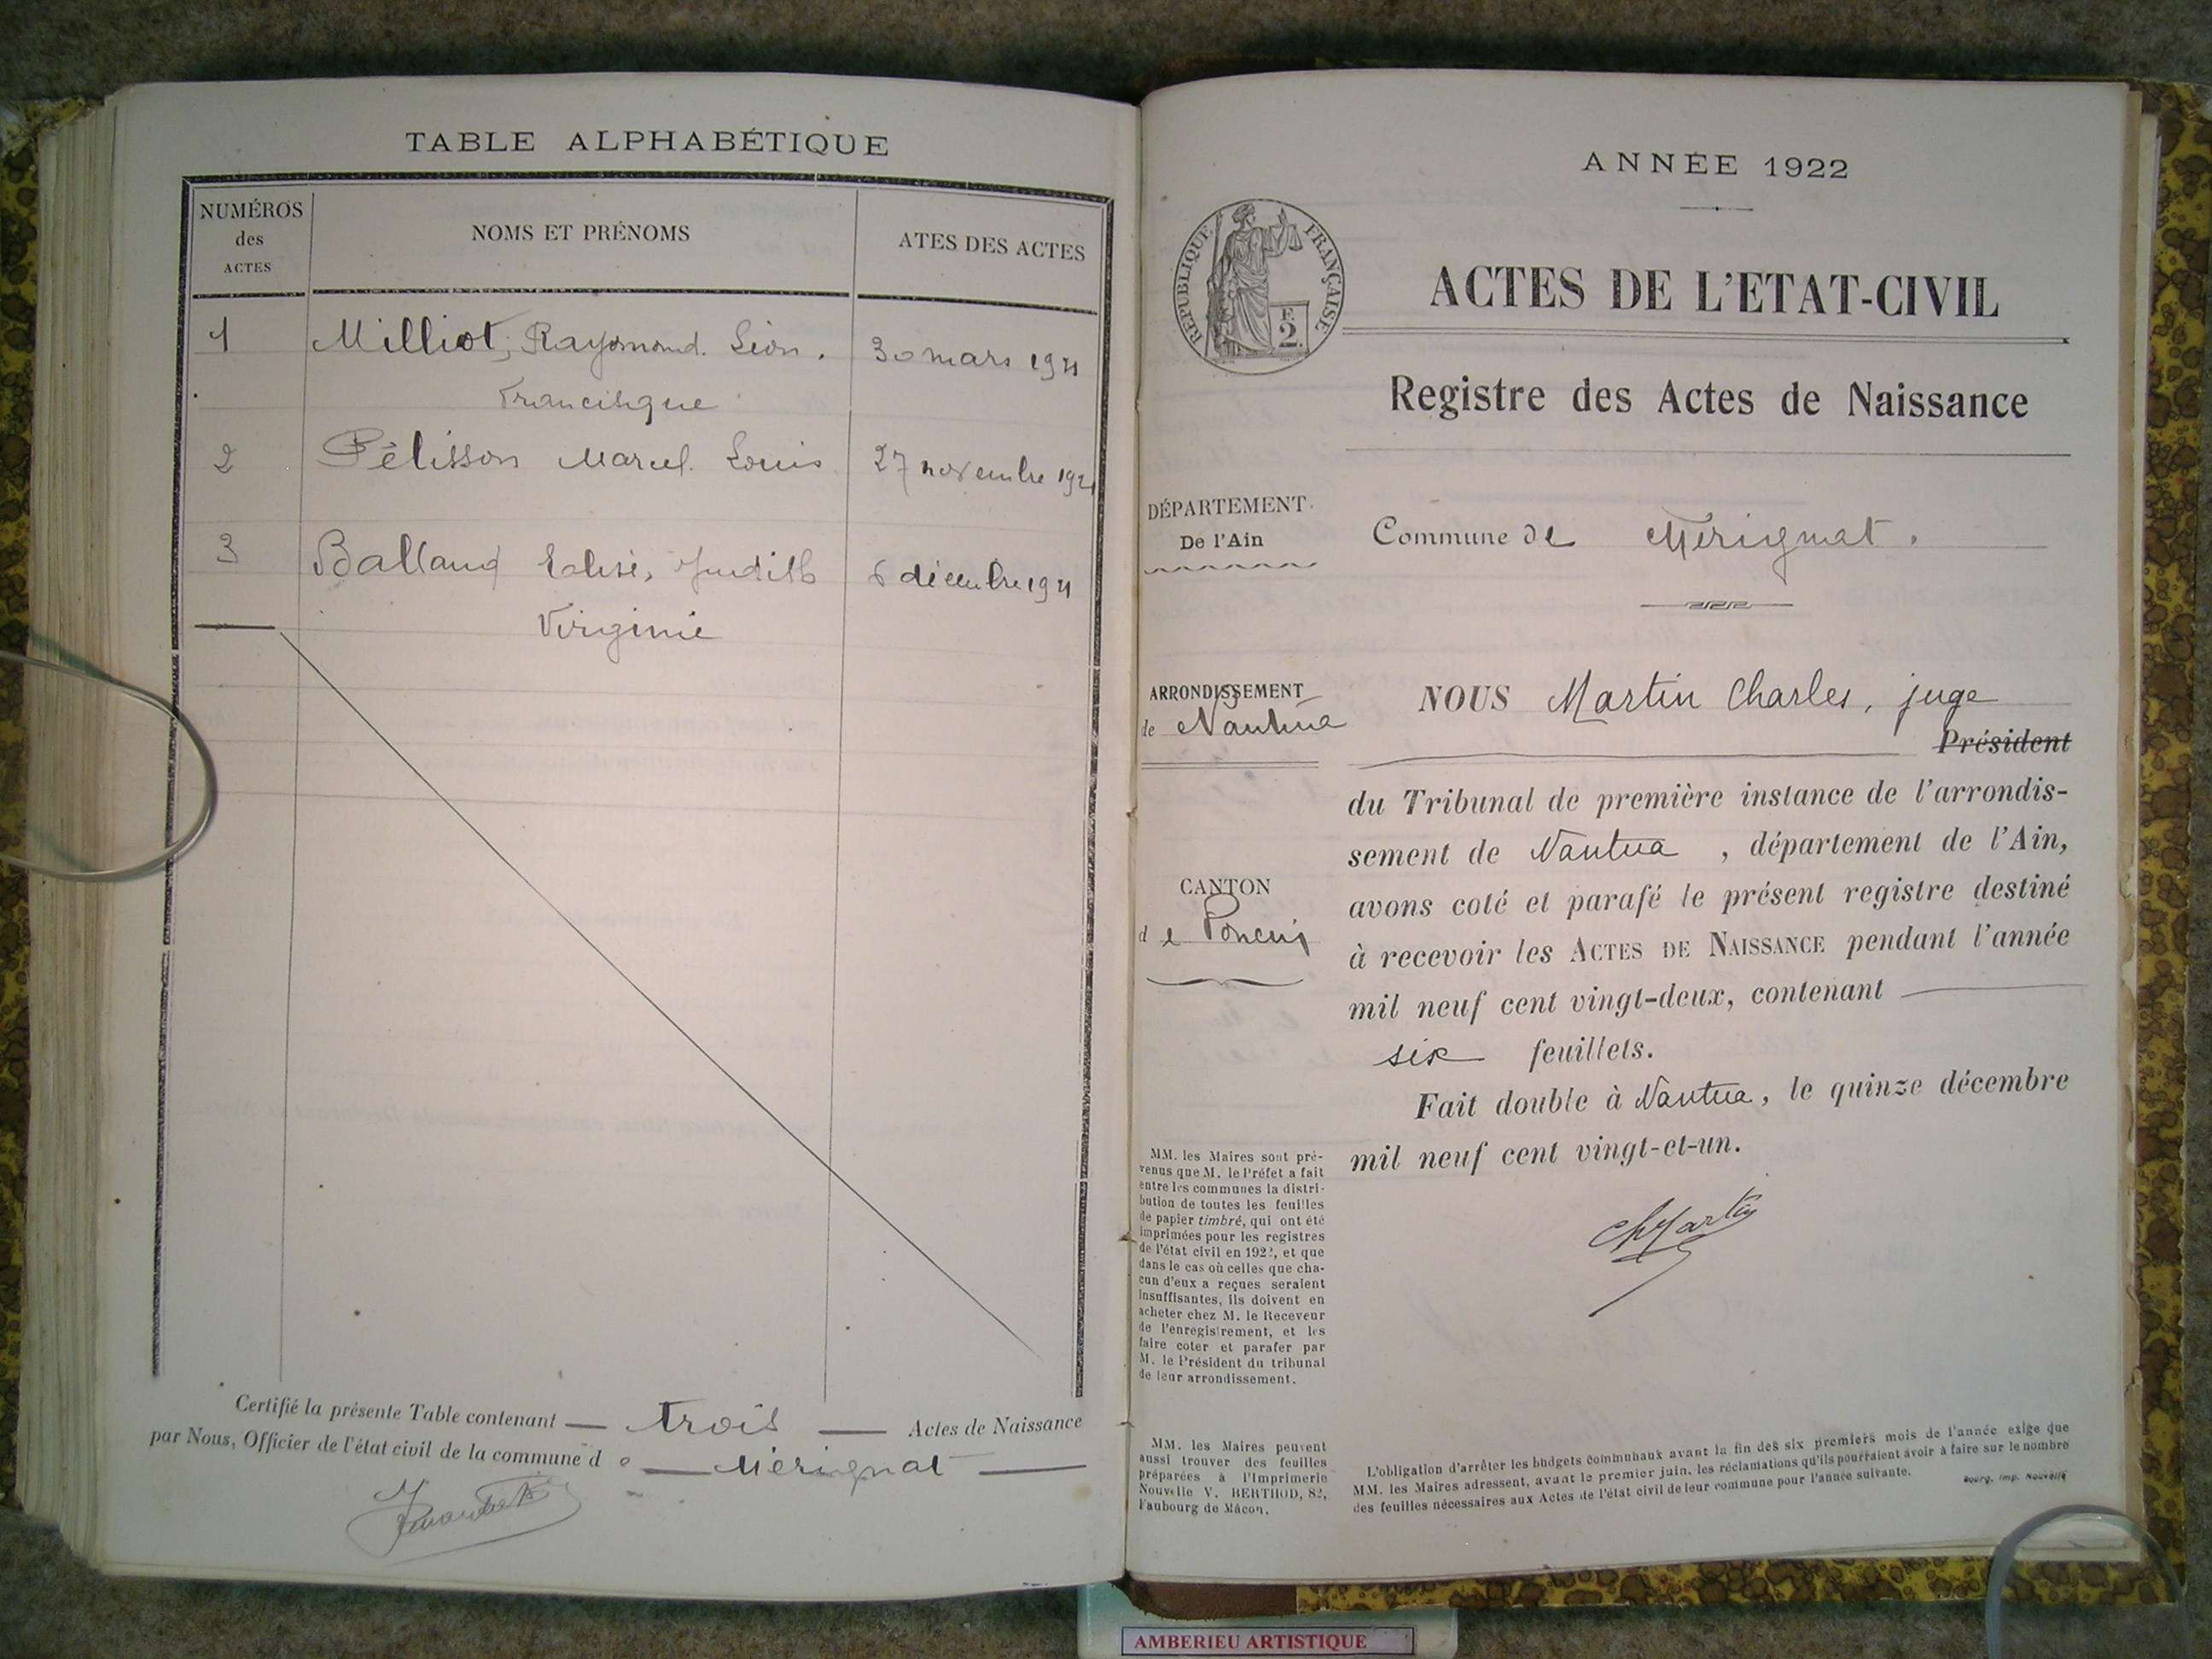 TABLE ALPHABÉTIQUE
NUMÉROS
des
ACTES
NOMS ET PRÉNOMS
ATES DES ACTES
1 Milliot, Raymond. Léon. 30 mars 1921
Francisque
2 Pélisson Marcel. Louis 27 novembre 1921
3 Balland Judith 6 décembre 1921
Virginie
Certifié la présente Table contenant — trois — Actes de Naissance
par Nous, Officier de l'état civil de la commune de — Mérignat —
ANNÉE 1922
REPUBLIQUE FRANÇAISE
F.
2.
ACTES DE L'ETAT-CIVIL
Registre des Actes de Naissance
DÉPARTEMENT
De l'Ain
Commune de Mérignat.
ARRONDISSEMENT
de Nantua
CANTON
de Poncin
NOUS Martin Charles, juge
Président
du Tribunal de première instance de l'arrondis-
sement de Nantua, département de l'Ain,
avons coté et parafé le présent registre destiné
à recevoir les ACTES DE NAISSANCE pendant l'année
mil neuf cent vingt-deux, contenant
six feuillets.
Fait double à Nantua, le quinze décembre
mil neuf cent vingt-et-un.
ChMartin
MM. les Maires sont pré-
venus que M. le Préfet a fait
entre les communes la distri-
bution de toutes les feuilles
de papier timbré, qui ont été
imprimées pour les registres
de l'état civil en 1922, et que
dans le cas où celles que cha-
cun d'eux a reçues seraient
insuffisantes, ils doivent en
acheter chez M. le Receveur
de l'enregistrement, et les
faire coter et parafer par
M. le Président du tribunal
de leur arrondissement.
MM. les Maires peuvent
aussi trouver des feuilles
préparées à l'Imprimerie
Nouvelle V. BERTHOD, 82,
Faubourg de Mâcon.
L'obligation d'arrêter les budgets communaux avant la fin des six premiers mois de l'année exige que
MM. les Maires adressent, avant le premier juin, les réclamations qu'ils pourraient avoir à faire sur le nombre
des feuilles nécessaires aux Actes de l'état civil de leur commune pour l'année suivante.
Bourg, Imp. Nouvelle
AMBERIEU ARTISTIQUE